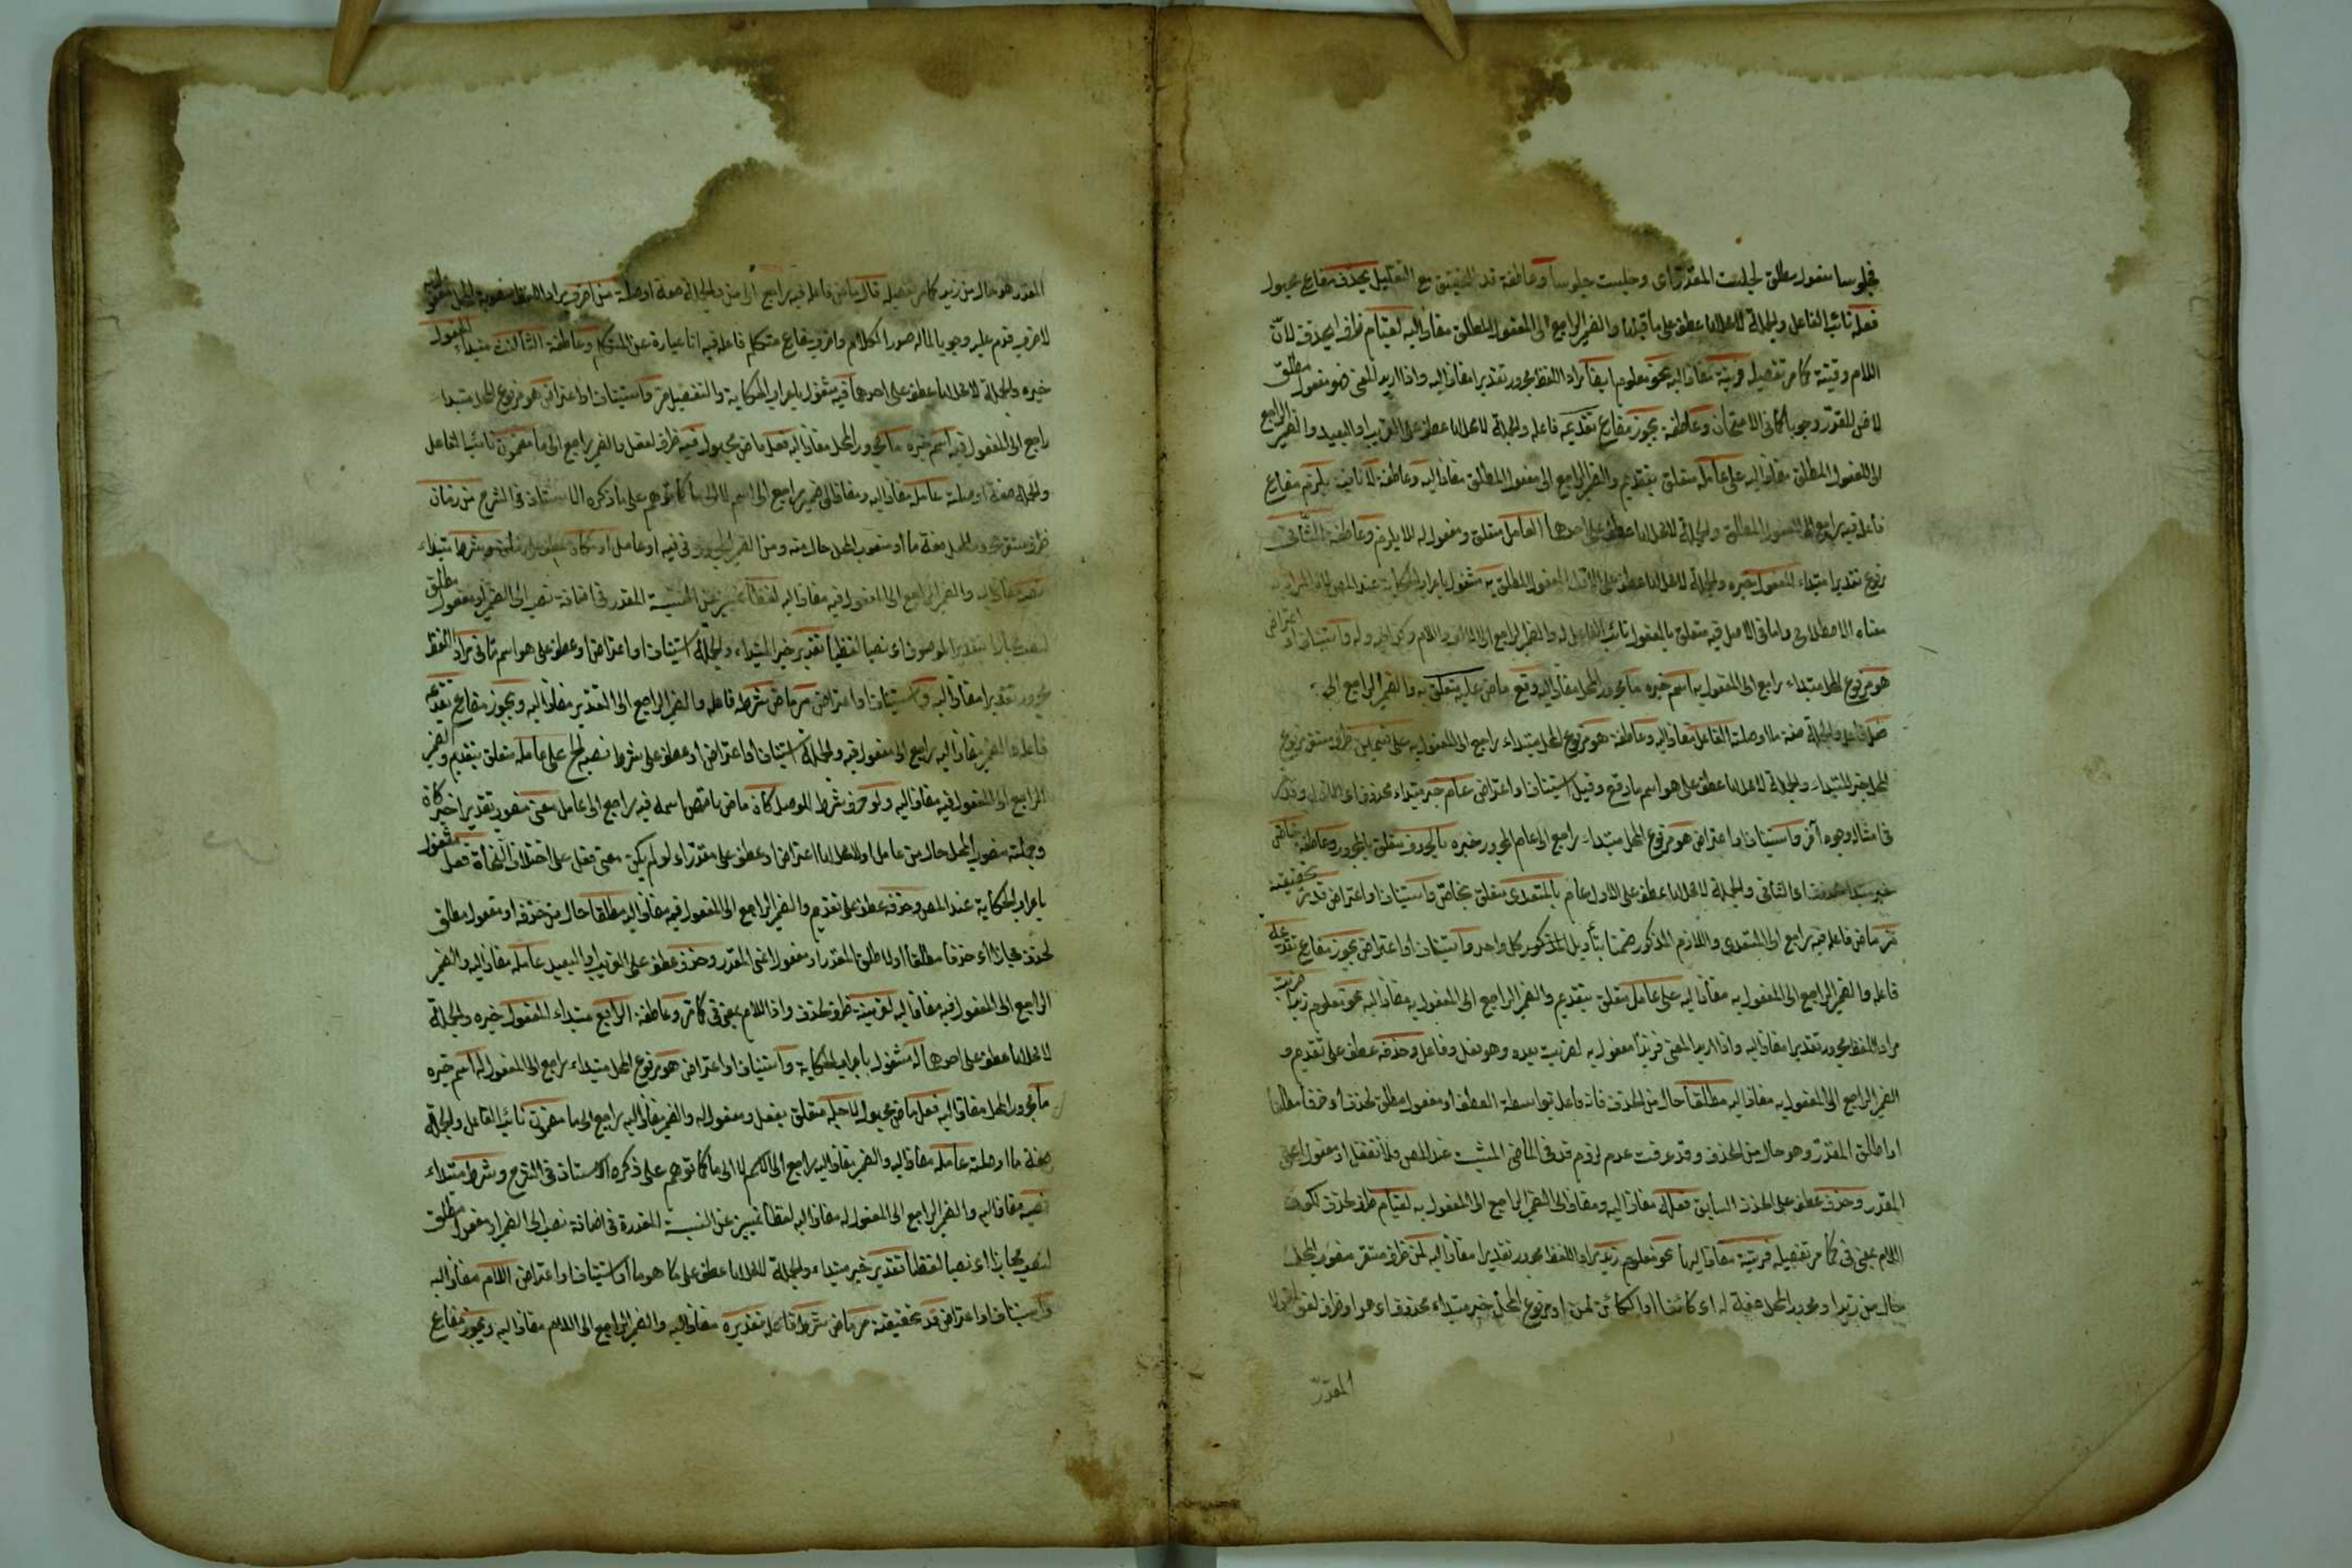 فجلوسا مفعول مطلق لجلست المقدر اى وجلست جلوسا وعاطفة قد للتحقيق مع التقليل يحذف مضارع مجهول
فعله نائب الفاعل والجملة لا محل لها عطف على ما قبلها والضمير الراجع الى المفعول المطلق مضاف اليه لقيام ظرف ليحذف لان
اللام وقتية كما مر تفصيله قرينة مضاف اليه نحو معلوم ايضا مراد اللفظ مجرور تقديرا مضاف اليه واذا اريد المعنى فهو مفعول مطلق
وجوبا كما فى الامتحان وعاطفة يجوز مضارع تقديمه فاعله والجملة لا محل لها عطف على القريب او البعيد والضمير الراجع
الى المفعول المطلق مضاف اليه على عامله متعلق بتقديم والضمير الراجع الى مفعول المطلق مضاف اليه وعاطفة لا نافية يلزم مضارع
فاعله فيه راجع الى المفعول المطلق والجملة لا محل لها عطف على احدها العامل متعلق ومفعول له لا يلزم وعاطفة الثانى
مرفوع تقديرا مبتداء المفعول خبره والجملة لا محل لها عطف على الاول المفعول المطلق به مشغول باعراب الحكاية عند المص
معناه الاصطلاحى واما فى الاصل فيه متعلق بالمفعول نائب الفاعل له والضمير الراجع الى الالف واللام واستيناف او اعتراض
هو مرفوع المحل مبتداء راجع الى المفعول به اسم خبره ما مجرور المحل مضاف اليه وقع ماض عليه متعلق به والضمير الراجع الى
فاعله والجملة صفة ما او صلة الفاعل مضاف اليه وعاطفة هو مرفوع المحل مبتداء راجع الى المفعول به على قسمين ظرف مستقر مرفوع
المحل خبر المبتداء والجملة لا محل لها عطف على هو اسم ما وقع وقيل استيناف او اعتراض عام خبر مبتداء محذوف اى الاول
فى امثاله وجوه آخر واستيناف او اعتراض هو مرفوع المحل مبتداء راجع الى عام المجرور خبره بالحرف متعلق بالمجرور وعاطفة خاص
خبر مبتداء محذوف اى الثانى والجملة لا محل لها عطف على الاول عام بالمتعدى متعلق بخاص واستيناف او اعتراض قد تحقيقية
مر ماض فاعله فيه راجع الى المتعدى واللازم المذكور ضمنا بتأويل المذكور كل واحد واستيناف او اعتراض يجوز مضارع تقديمه
فاعله والضمير الراجع الى المفعول به مضاف اليه على عامله متعلق بتقديم والضمير الراجع الى المفعول به مضاف اليه نحو معلوم زيدا ضربت
مراد اللفظ مجرور تقديرا مضاف اليه واذا اريد المعنى فزيدا مفعول به لضربت بعده وهو فعل وفاعل وحذفه عطف على تقديم و
الضمير الراجع الى المفعول به مضاف اليه مطلقا حال من الحذف فانه فاعل بواسطة العطف او مفعول مطلق لحذف اى حذفا مطلقا
او اطلق المقدر وهو حال من الحذف وقد عرفت عدم لزوم قد فى الماضى المثبت عند المص فلا تغفل او مفعول اعنى
المقدر وحذف عطف على الحذف السابق فعله مضاف اليه ومضاف الى الضمير الراجع الى المفعول به لقيام ظرف لحذف لكون
اللام بمعنى فى كما مر تفصيله قرينة مضاف اليها نحو معلوم زيد مراد اللفظ مجرور تقديرا مضاف اليه لمن ظرف مستقر منصوب المحل
حال من زيدا او مجرور المحل صفة له اى كائنا او الكائن لمن او مرفوع المحل خبر مبتداء محذوف اى هو او ظرف لغو
المقدر
المقدر هو حال من زيد كما مر تفصيله قال ماض فاعله فيه راجع الى من والجملة صفة او صلة من اضرب مراد اللفظ منصوبة المحل مقول
لاضرب قدم عليه وجوبا لماله صدر الكلام واضرب مضارع متكلم فاعله فيه انا عبارة عن المتكلم وعاطفة الثالث مبتداء المفعول
خبره والجملة لا محل لها عطف على احدها فيه مشغول باعراب الحكاية والتفصيل مر واستيناف او اعتراض هو مرفوع المحل مبتداء
راجع الى المفعول فيه اسم خبره ما مجرور المحل مضاف اليه فعل ماض مجهول فيه ظرف لفعل والضمير راجع الى ما مضمون نائب الفاعل
والجملة صفة او صلة عامله مضاف اليه ومضاف الى ضمير راجع الى اسم لا الى ما كما توهم على ما ذكره الاستاذ فى الشرح من زمان
ظرف مستقر مجرور المحل صفة ما او منصوب المحل حال منه ومن الضمير المجرور فى فيه او عامله او مكان عطف على زمان وشرط مبتداء
نصبه مضاف اليه والضمير الراجع الى المفعول فيه مضاف اليه لفظا تمييز عن النسبة المقدر فى اضافة نصب الى الضمير او مفعول مطلق
لنصب مجازا بتقدير الموصوف اى نصبا لفظيا تقدير خبر المبتداء والجملة استيناف او اعتراض او عطف على هو اسم ثانى مراد اللفظ
مجرور تقديرا مضاف اليه واستيناف او اعتراض مر ماض شرط فاعله والضمير الراجع الى التقدير مضاف اليه ويجوز مضارع تقديمه
فاعله الضمير مضاف اليه راجع الى مفعول فيه والجملة استيناف او اعتراض او عطف على شرط نصبه الخ على عامله متعلق بتقديم والضمير
الراجع الى المفعول فيه مضاف اليه ولو حرف شرط للوصل كان ماض ناقص اسمه فيه راجع الى عامل معنى منصوب تقديرا خبر كان
وجملته منصوب المحل حال من عامل او لا محل لها اعتراض او عطف على مقدر اى لو لم يكن معنى فعل على اختلاف النحاة فعل مشغول
باعراب الحكاية عند المص وحذفه عطف على تقديم والضمير الراجع الى المفعول فيه مضاف اليه مطلقا حال من حذفه او مفعول مطلق
لحذف مجازا اى حذفا مطلقا او اطلق المقدر او مفعول اعنى المقدر وحذف عطف على القريب او البعيد عامله مضاف اليه والضمير
الراجع الى المفعول فيه مضاف اليه لقرينة ظرف لحذف واذا اللام بمعنى فى كما مر وعاطفة الرابع مبتداء المفعول خبره والجملة
لا محل لها عطف على احدها له مشغول باعراب الحكاية واستيناف او اعتراض هو مرفوع المحل مبتداء راجع الى المفعول له اسم خبره
ما مجرور المحل مضاف اليه فعل ماض مجهول لاجله متعلق بفعل ومفعول له والضمير مضاف اليه راجع الى ما مضمون نائب الفاعل والجملة
صفة ما او صلة عامله مضاف اليه والضمير مضاف اليه راجع الى الاسم لا الى ما كما توهم على ذكره الاستاذ فى الشرح وشرط مبتداء
نصبه مضاف اليه والضمير الراجع الى المفعول له مضاف اليه لفظا تمييز عن النسبة المقدرة فى اضافة نصب الى الضمير او مفعول مطلق
لنصب مجازا اى نصبا لفظيا تقدير خبر مبتداء والجملة لا محل لها عطف على ما كا هو ما او استيناف او اعتراض اللام مضاف اليه
واستيناف او اعتراض قد تحقيقية مر ماض شرط فاعله تقديره مضاف اليه والضمير الراجع الى اللام مضاف اليه ويجوز مضارع